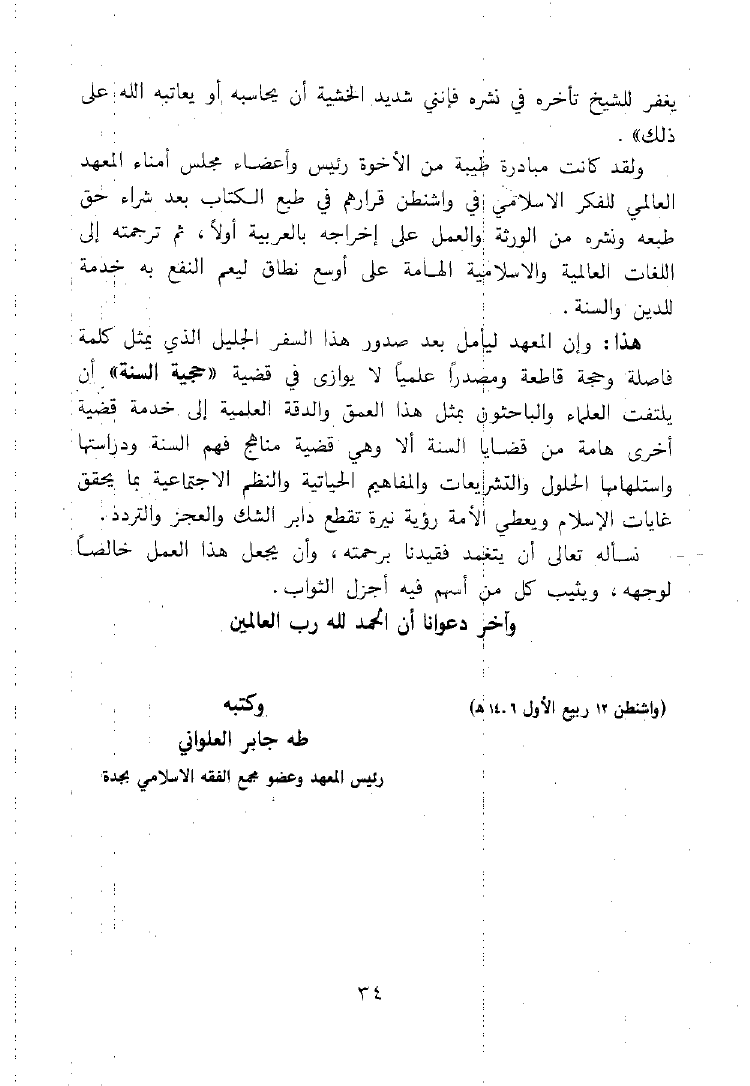 يغفر للشيخ تأخره في نشره فإنني شديد الخشية أن يحاسبه أو يعاتبه الله على
ذلك» .
ولقد كانت مبادرة طيبة من الأخوة رئيس وأعضاء مجلس أمناء المعهد
العالمي للفكر الاسلامي في واشنطن قرارهم في طبع الكتاب بعد شراء حق
طبعه ونشره من الورثة والعمل على إخراجه بالعربية أولاً ، ثم ترجمته إلى
اللغات العالمية والاسلامية الهامة على أوسع نطاق ليعم النفع به خدمة
للدين والسنة .
هذا : وإن المعهد ليأمل بعد صدور هذا السفر الجليل الذي يمثل كلمة
فاصلة وحجة قاطعة ومصدراً علمياً لا يوازى في قضية «حجية السنة» أن
يلتفت العلماء والباحثون بمثل هذا العمق والدقة العلمية إلى خدمة قضية
أخرى هامة من قضايا السنة ألا وهي قضية مناهج فهم السنة ودراستها
واستلهامها الحلول والتشريعات والمفاهيم الحياتية والنظم الاجتماعية بما يحقق
غايات الإسلام ويعطي الأمة رؤية نيرة تقطع دابر الشك والعجز والتردد .
نسأله تعالى أن يتغمد فقيدنا برحمته ، وأن يجعل هذا العمل خالصاً
لوجهه ، ويثيب كل من أسهم فيه أجزل الثواب .
وآخر دعوانا أن الحمد لله رب العالمين
(واشنطن ١٢ ربيع الأول ١٤٠٦ هـ)
وكتبه
طه جابر العلواني
رئيس المعهد وعضو مجمع الفقه الاسلامي بجدة
٣٤